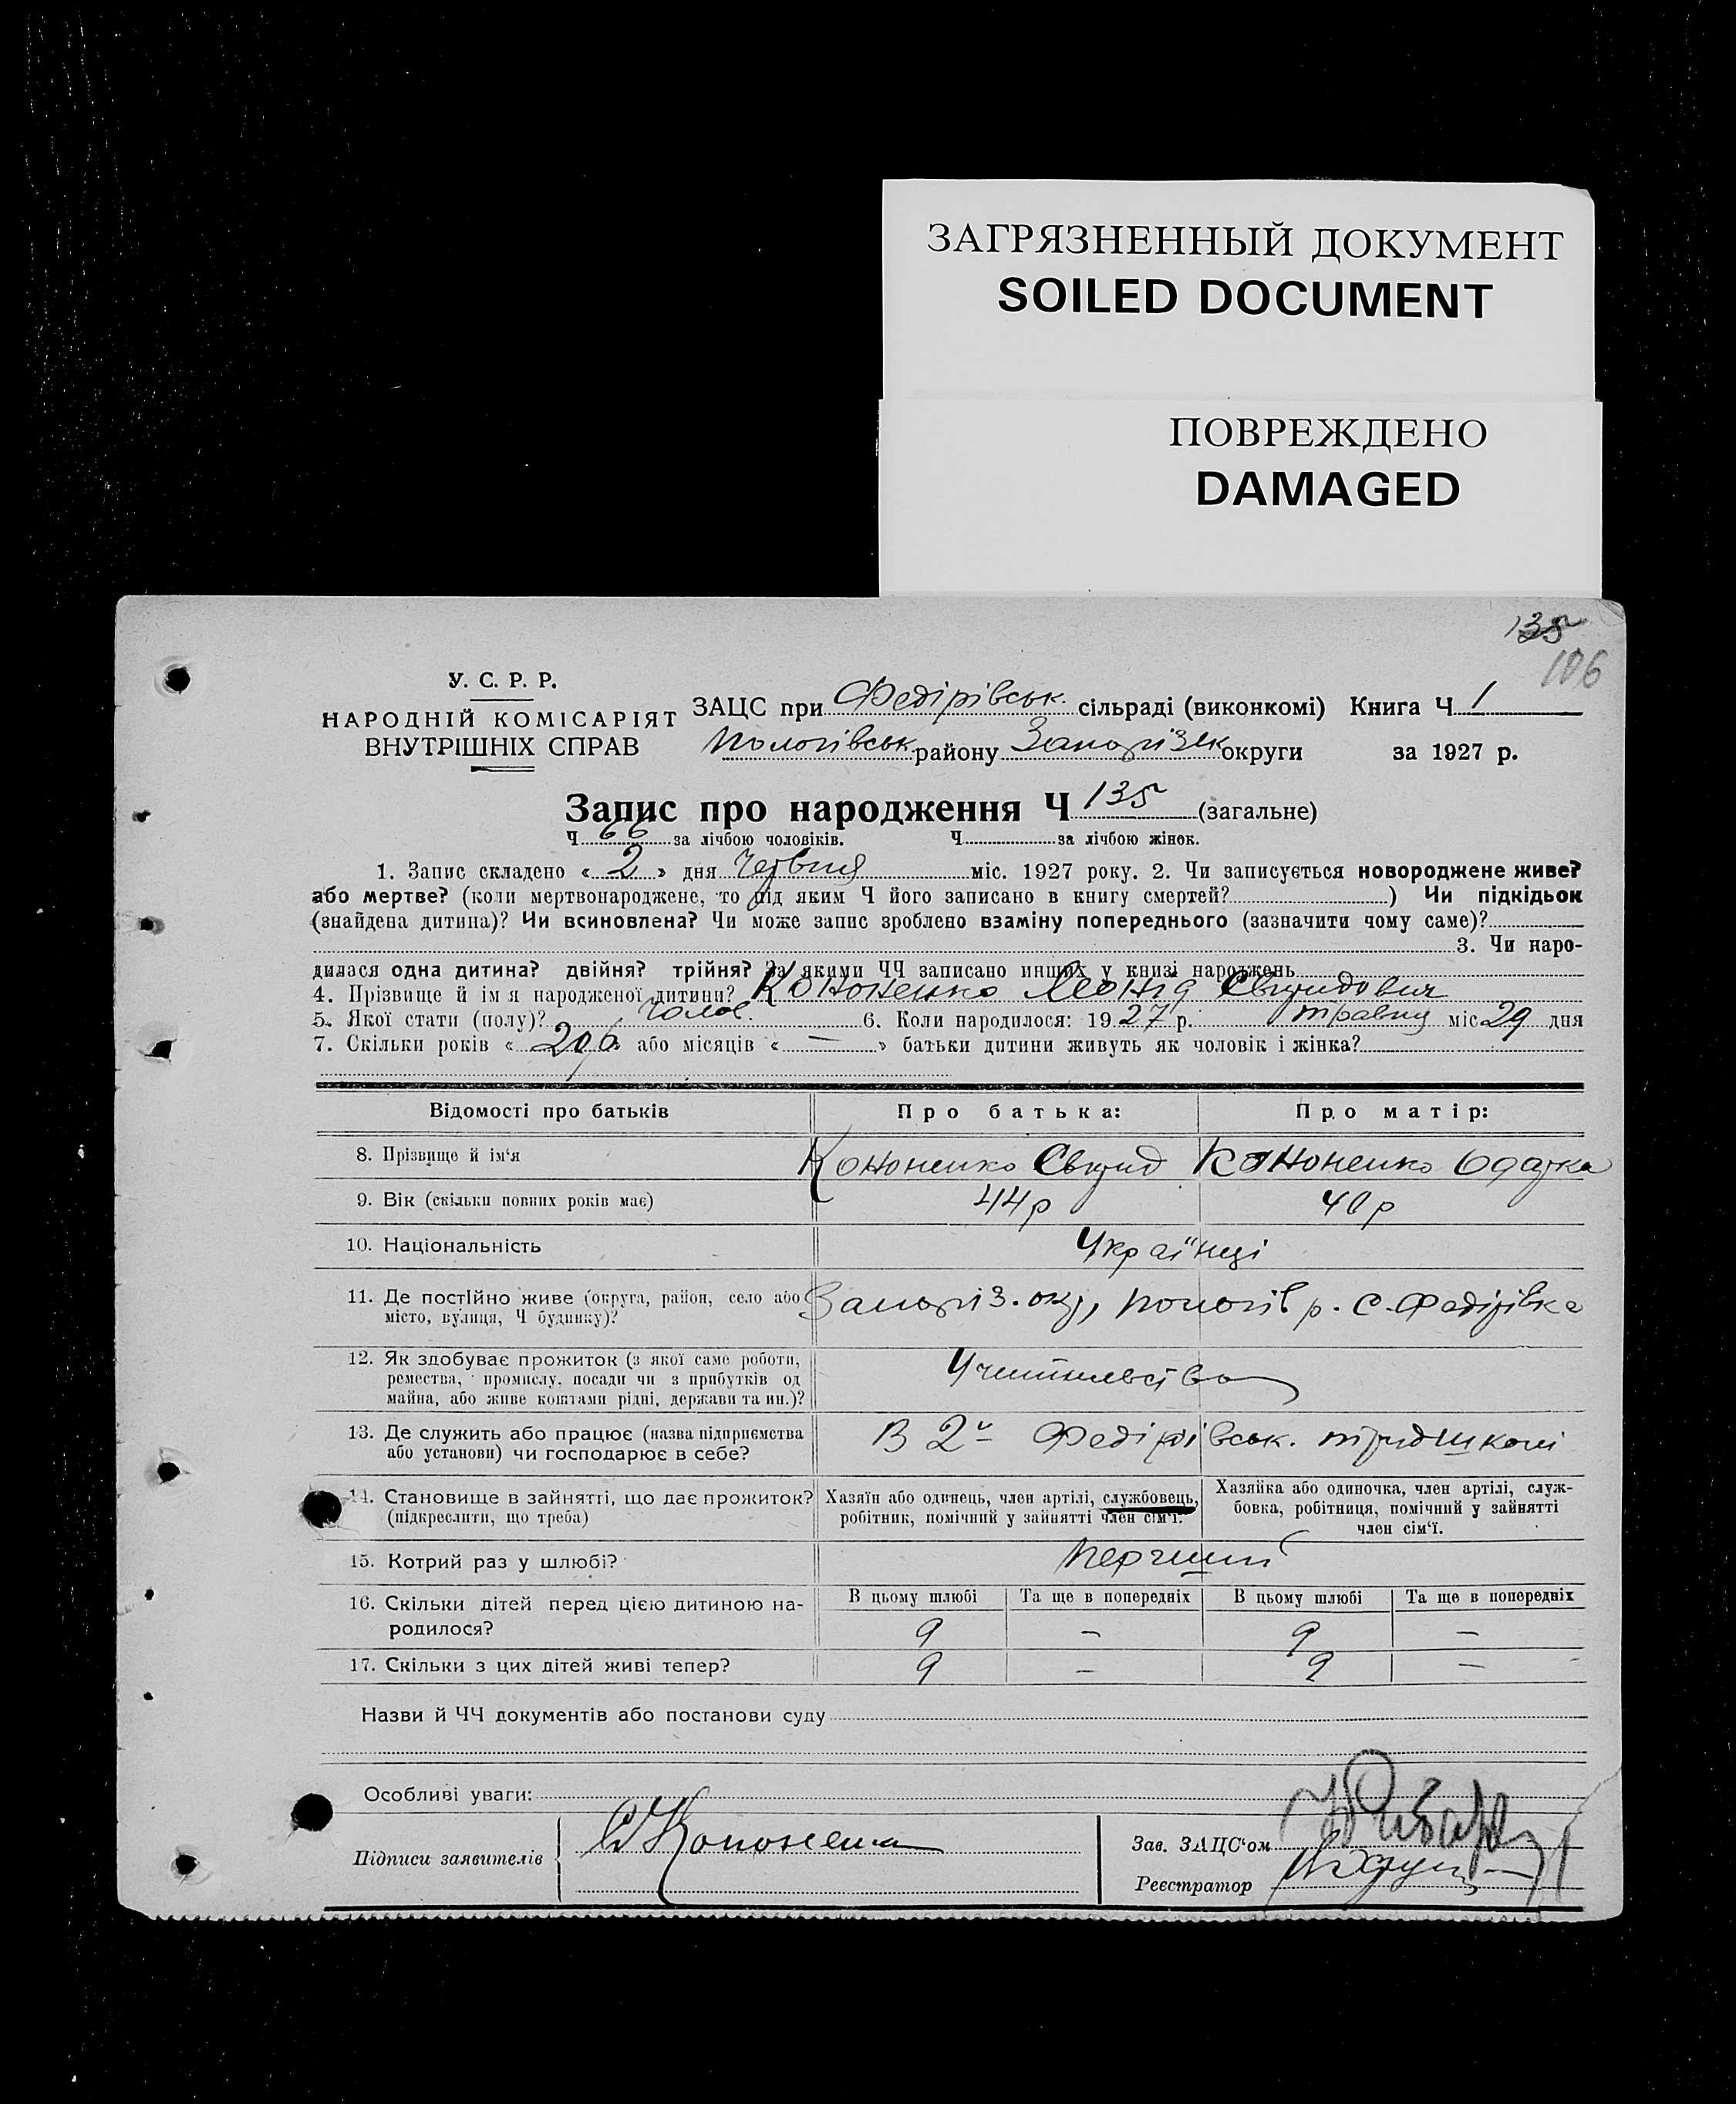 ЗАГРЯЗНЕННЫЙ ДОКУМЕНТ
SOILED DOCUMENT
ПОВРЕЖДЕНО
DAMAGED
135
106
У. С. Р. Р.
НАРОДНІЙ КОМІСАРІЯТ
ВНУТРІШНІХ СПРАВ
ЗАЦС при Федірівськ. сільраді (виконкомі) Книга Ч 1
Пологівськ. району Запоріжк округи за 1927 р.
Запис про народження Ч 135 (загальне)
Ч 66 за лічбою чоловіків. Ч за лічбою жінок.
1. Запис складено « 2 » дня червня міс. 1927 року. 2. Чи записується новороджене живе?
або мертве? (коли мертвонароджене, то під яким Ч його записано в книгу смертей? ) Чи підкідьок
(знайдена дитина)? Чи всиновлена? Чи може запис зроблено взаміну попереднього (зазначити чому саме)?
3. Чи наро-
дилася одна дитина? двійня? трійня? За якими ЧЧ записано инших у книзі народжень
4. Прізвище й ім я народженої дитини? Кононенко Леонід Свиридович
5. Якої стати (полу)? чолов. 6. Коли народилося: 19 27 р. травня міс 29 дня
7. Скільки років « 20 » або місяців « — » батьки дитини живуть як чоловік і жінка?
Відомості про батьків Про батька: Про матір:
8. Прізвище й ім‘я Кононенко Свирид Кононенко
9. Вік (скільки повних років має) 44 р 40 р
10. Національність Українці
11. Де постійно живе (округа, район, село або Запоріз. окр, Пологів р. с. Федірівка
місто, вулиця, Ч будинку)?
12. Як здобуває прожиток (з якої саме роботи, Учительство
ремества, промислу, посади чи з прибутків од
майна, або живе коштами рідні, держави та ин.)?
13. Де служить або працює (назва підприємства В 2й Федірівськ. трудшколі
або установи) чи господарює в себе?
14. Становище в зайнятті, що дає прожиток? Хазяїн або одинець, член артілі, службовець, Хазяйка або одиночка, член артілі, служ-
(підкреслити, що треба) робітник, помічний у зайнятті член сім‘ї. бовка, робітниця, помічний у зайнятті
член сім‘ї.
15. Котрий раз у шлюбі? Перший
16. Скільки дітей перед цією дитиною на- В цьому шлюбі Та ще в попередніх В цьому шлюбі Та ще в попередніх
родилося? 9 — 9 —
17. Скільки з цих дітей живі тепер? 9 — 9 —
Назви й ЧЧ документів або постанови суду
Особливі уваги:
Підписи заявителів С Кононенко
Зав. ЗАЦС‘ом
Реєстратор